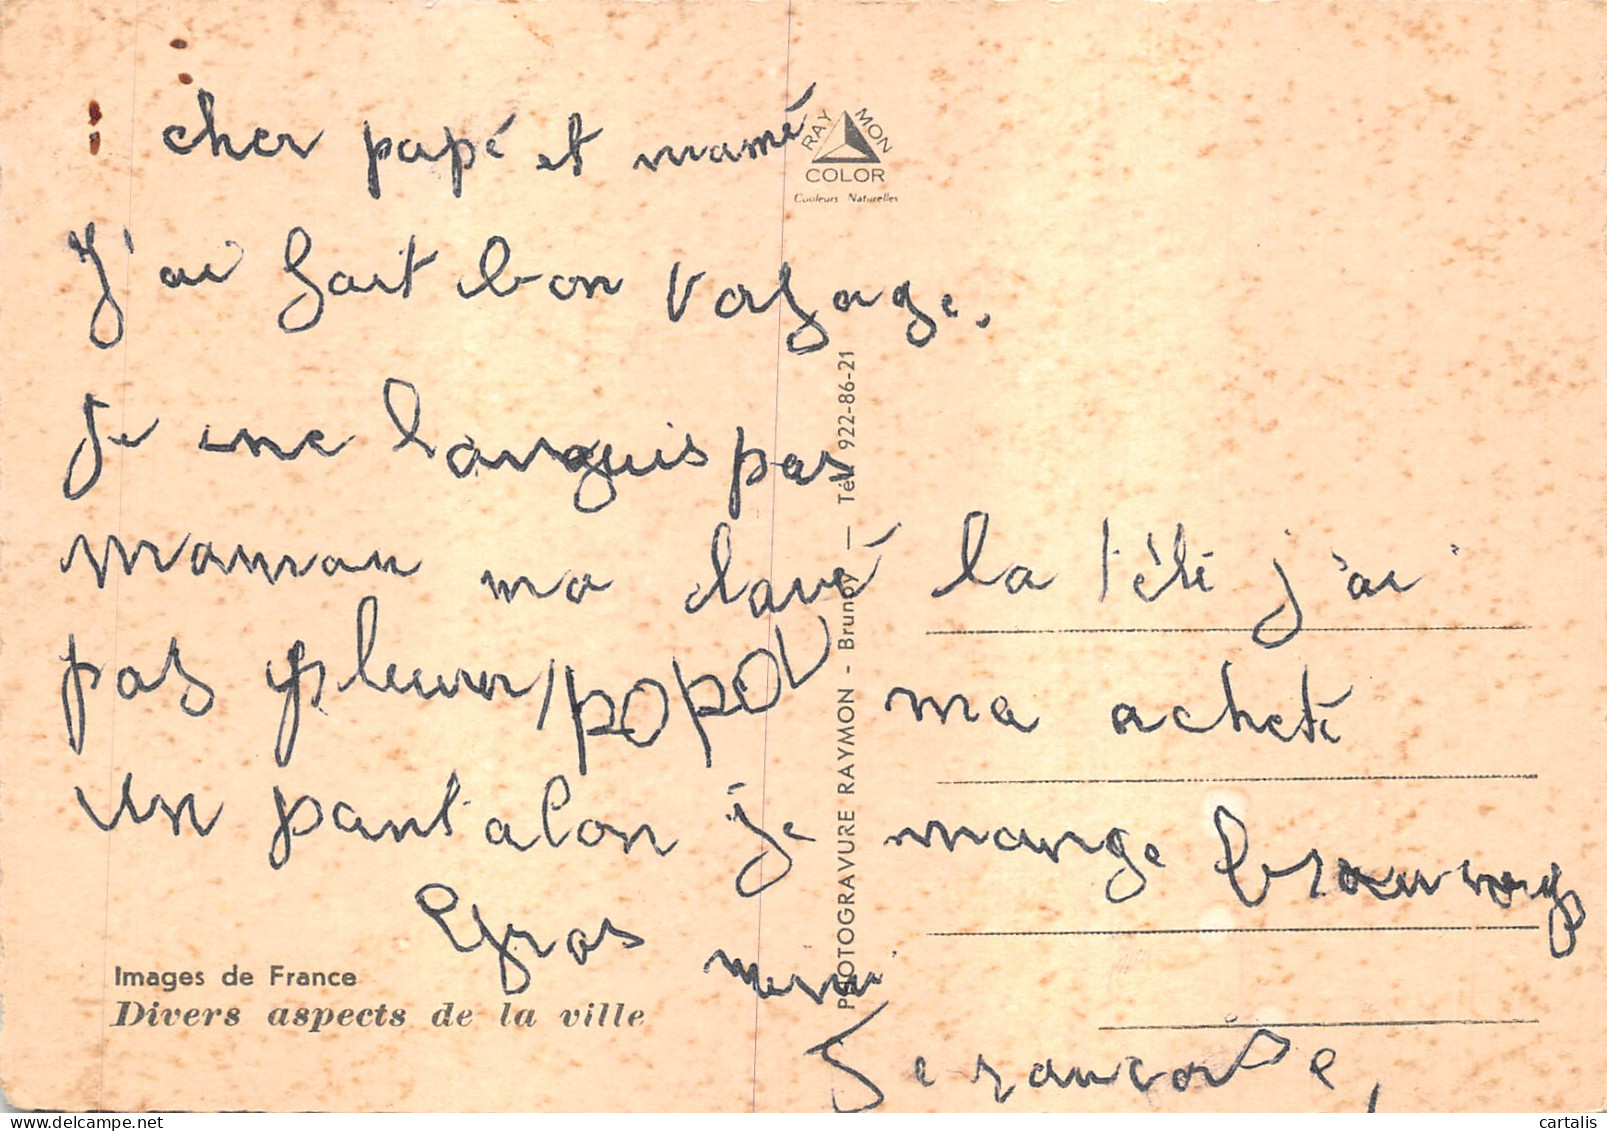 cher papé et mamé
RAYMON
COLOR
Couleurs Naturelles
J'ai fait bon voyage.
je me languis pas
maman ma lavé la télé j'ai
pas pleurer, POPOL ma acheté
un pantalon je mange
Gros
PHOTOGRAVURE RAYMON - Brunoy — Tél. 922-86-21
Images de France
Divers aspects de la ville
delcampe.net
cartalis